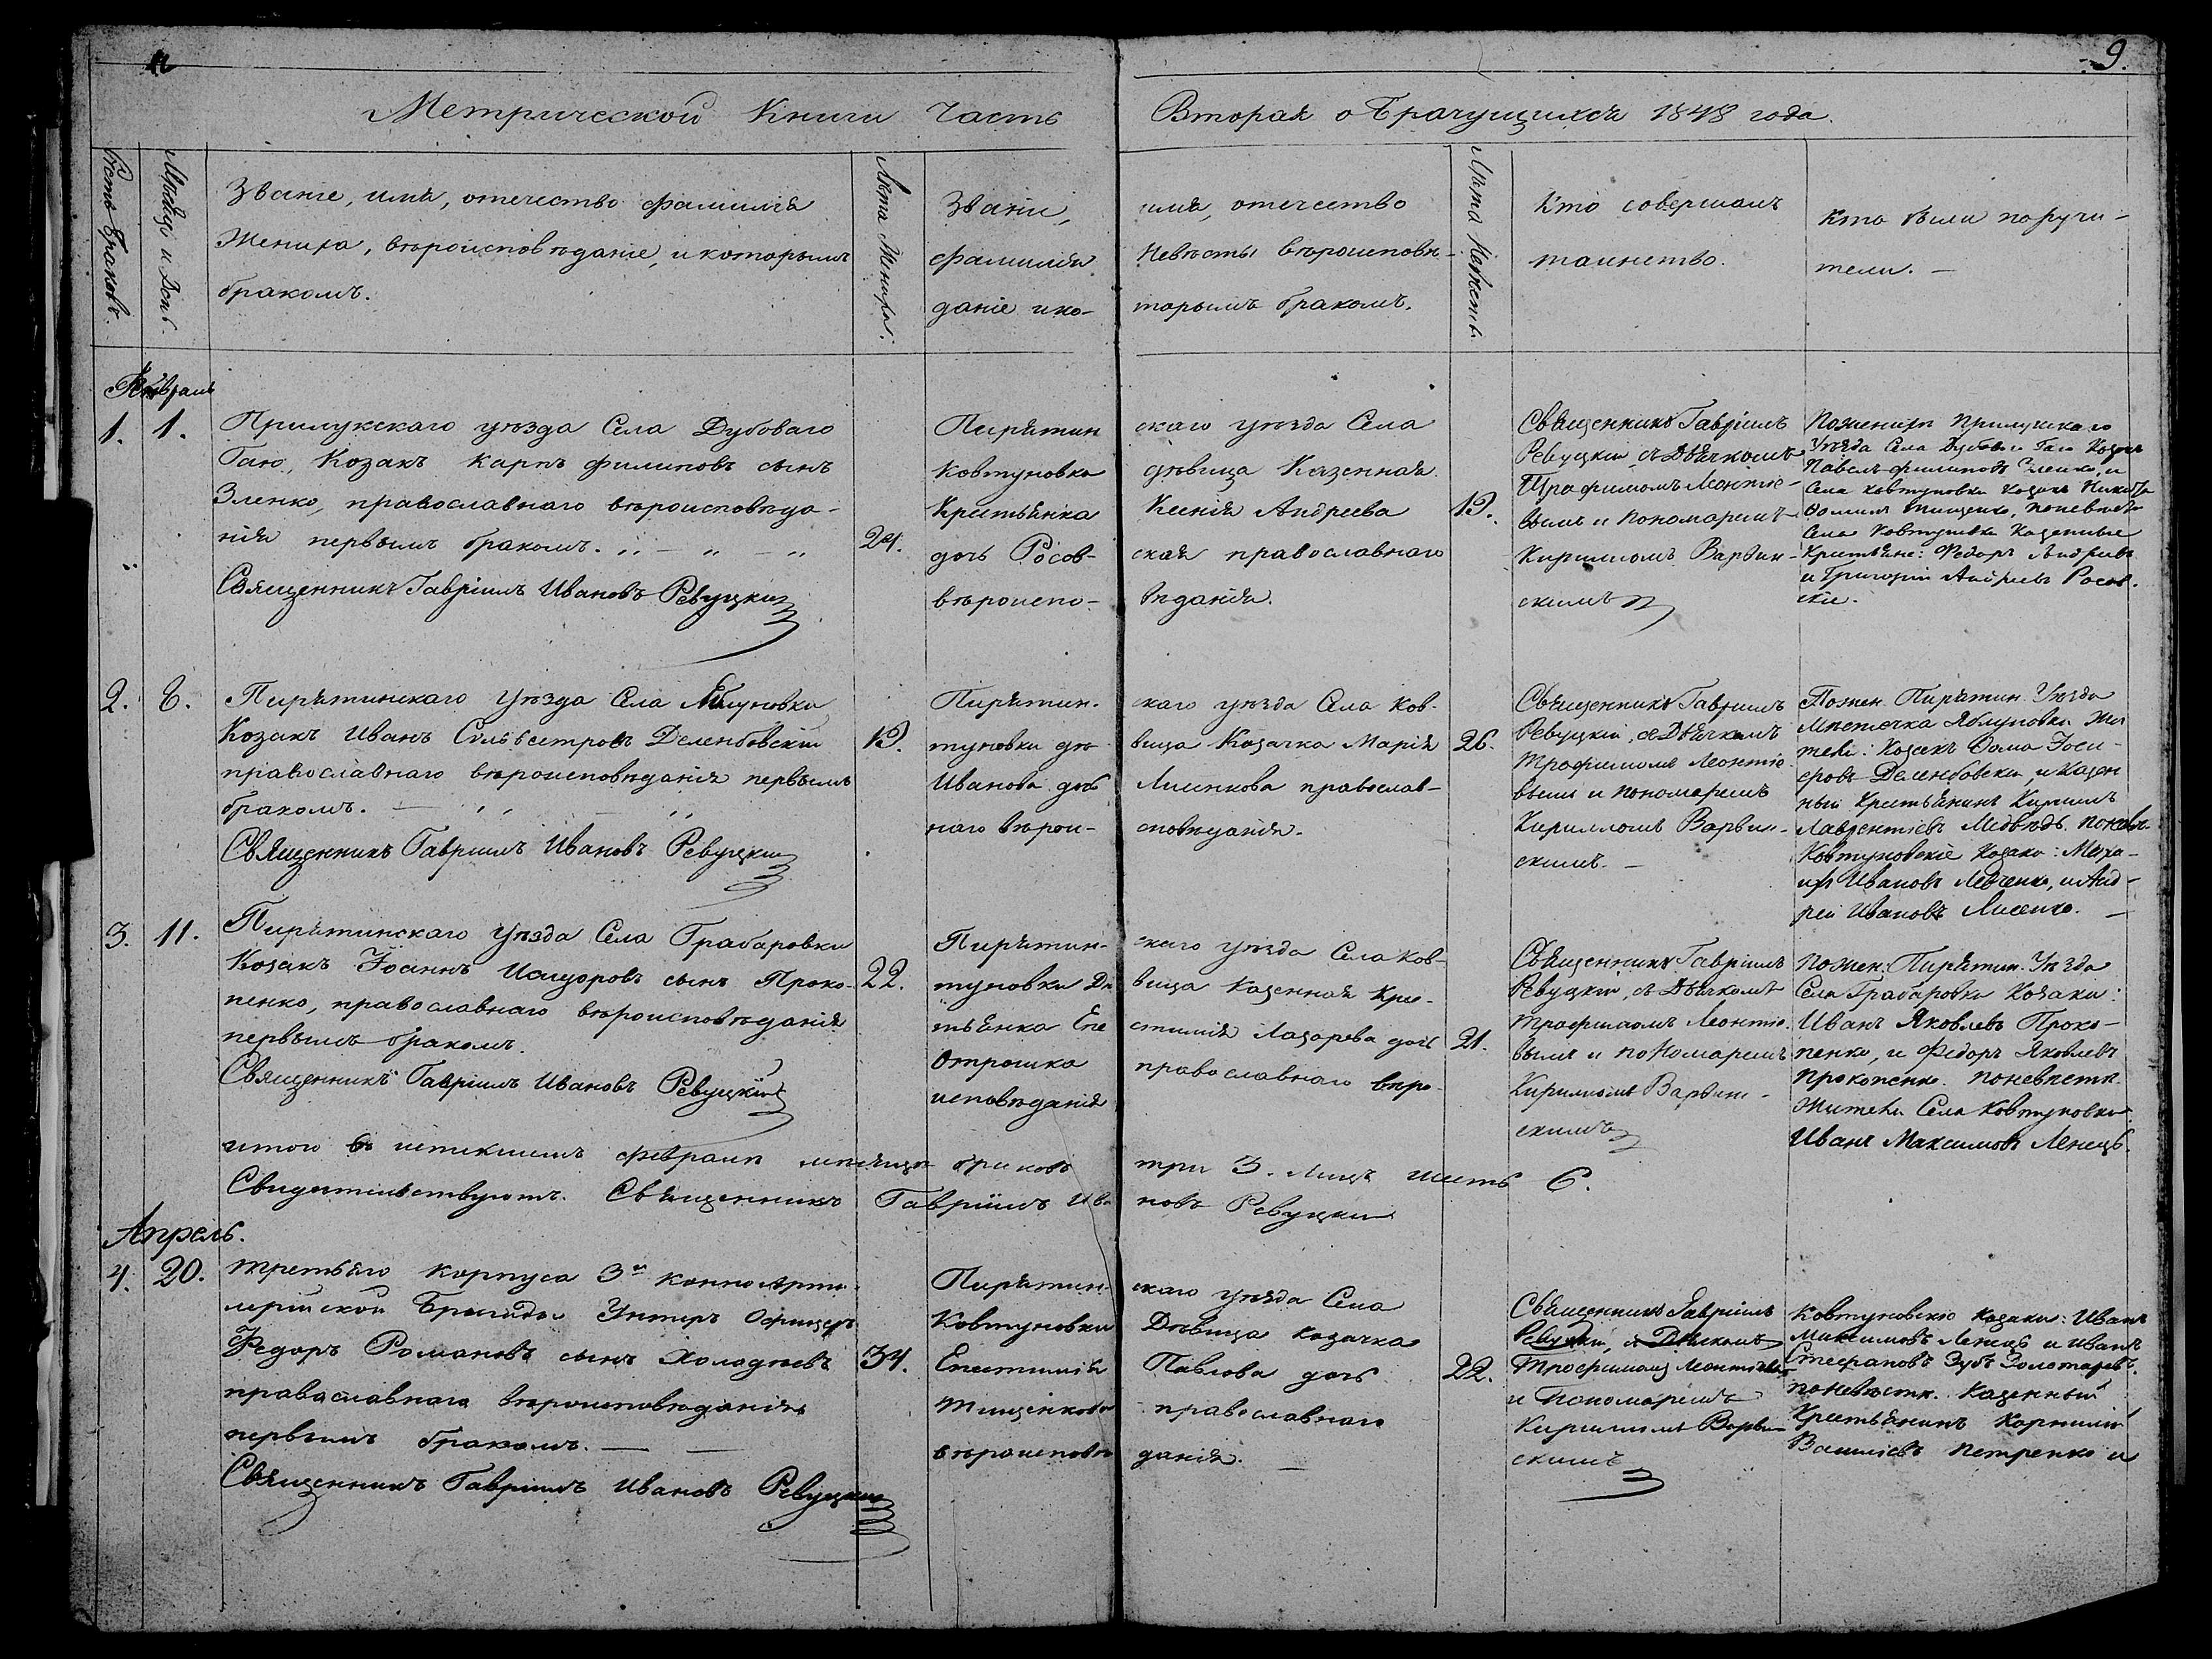 9.
Метрической Книги Часть Вторая о Брачущихся 1848 года.
Мѣсяцъ и День.
Званіе, имя, отечество фамилія
Жениха, вѣроисповѣданіе, и которымъ
бракомъ.
Лѣта Жениха.
Званіе, имя, отечество
фамилія Невѣсты вѣроисповѣ-
даніе и ко- торымъ бракомъ.
Лѣта Невѣсты
Кто совершалъ
таинство.
Кто были поручи-
тели. —
Февраль
1. 1.
Прилукскаго уѣзда Села Дубоваго
Гаю, Козакъ Карпъ Филиповъ сынъ
Зленко, православнаго вѣроисповѣда-
нія первымъ бракомъ.
Священникъ Гавріилъ Ивановъ Ревуцкій
24.
Пирятин скаго уѣзда Села
Ковтуновка дѣвица Казенная
Крестьянка Ксенія Андреева
дочь Росов- ская православнаго
вѣроиспо- вѣданія.
19.
Священникъ Гавріилъ
Ревуцкій съ Дьячкомъ
Трофимомъ Леонтіе-
вымъ и пономаремъ
Кирилломъ Варвин-
скимъ
Поженихѣ Прилукскаго
Уѣзда Села Дубоваго Гаю Козакъ
Павелъ Филиповъ Зленко, и
Села Ковтуновки Козакъ Никита
Тищенко, поневѣстѣ
Села Ковтуновки Казенные
Крестьяне: Федоръ Андріевъ
и Григорій Андріевъ Росов-
скіе.
2. 8.
Пирятинскаго уѣзда Села Яблуновки
Козакъ Иванъ Сильвестровъ Деленбовскій
православнаго вѣроисповѣданія первымъ
бракомъ.
Священникъ Гавріилъ Ивановъ Ревуцкій
19.
Пирятин- скаго уѣзда Села Ков-
туновки дѣ- вица Козачка Марія
Иванова дочь Лисенкова православ-
наго вѣрои- сповѣданія.
26.
Священникъ Гавріилъ
Ревуцкій, съ Дьячкомъ
Трофимомъ Леонтіе-
вымъ и пономаремъ
Кирилломъ Варвин-
скимъ. —
Пожен. Пирятин. Уѣзда
Мѣстечка Яблуновки Жи
тели: Козакъ Фома Іоси-
фовъ Деленбовскій, и Казен
ный Крестьянинъ Кирилъ
Лаврентіевъ Медвѣдь. поневѣ-
Ковтуновскіе Козаки: Миха-
илъ Ивановъ Левченко, и Анд-
рей Ивановъ Лисенко. —
3. 11.
Пирятинскаго Уѣзда Села Грабаровки
Козакъ Іоаннъ Исидоровъ сынъ Проко-
пенко, православнаго вѣроисповѣданія
первымъ бракомъ.
Священникъ Гавріилъ Ивановъ Ревуцкій
22.
Пирятин- скаго уѣзда Села Ков-
туновки Дѣ вица Казенная Кре-
стьянка Епе стимія Лазарева дочь
Отрошка православнаго вѣро-
исповѣданія
21.
Священникъ Гавріилъ
Ревуцкій, съ Дьячкомъ
Трофимомъ Леонтіе-
вымъ и пономаремъ
Кирилломъ Варвин-
скимъ
Пожен. Пирятин. Уѣзда
Села Грабаровки Козаки:
Иванъ Яковлевъ Проко-
пенко, и Федоръ Яковлевъ
Прокопенко. поневѣстѣ.
Жители Села Ковтуновки
Иванъ Максимовъ Ленецъ.
итого въ истекшемъ Февралѣ мѣсяцѣ браковъ три 3. Лицъ шесть 6.
Свидетельствуютъ. Священникъ Гавріилъ Ива новъ Ревуцкій
Апрель.
4. 20.
третьяго корпуса 3й конноарти-
лерійской Бригады Унтеръ Офицеръ
Федоръ Романовъ сынъ Холоднѣевъ
православнаго вѣроисповѣданія
первымъ бракомъ. — —
Священникъ Гавріилъ Ивановъ Ревуцкій
34.
Пирятин- скаго уѣзда Села
Ковтуновки Дѣвица Козачка
Епестимія Павлова дочь
Тищенкова православнаго
вѣроисповѣ данія. —
22.
Священникъ Гавріилъ
Ревуцкій, съ Дьячкомъ
Трофимомъ Леонтіевымъ
и Пономаремъ
Кирилломъ Варвин
скимъ
Ковтуновскіе Козаки: Иванъ
Максимовъ Ленецъ и Иванъ
Стефановъ Зубъ Золотаревъ.
поневѣстѣ. Казенный
Крестьянинъ Корнилій
Василіевъ Петренко и